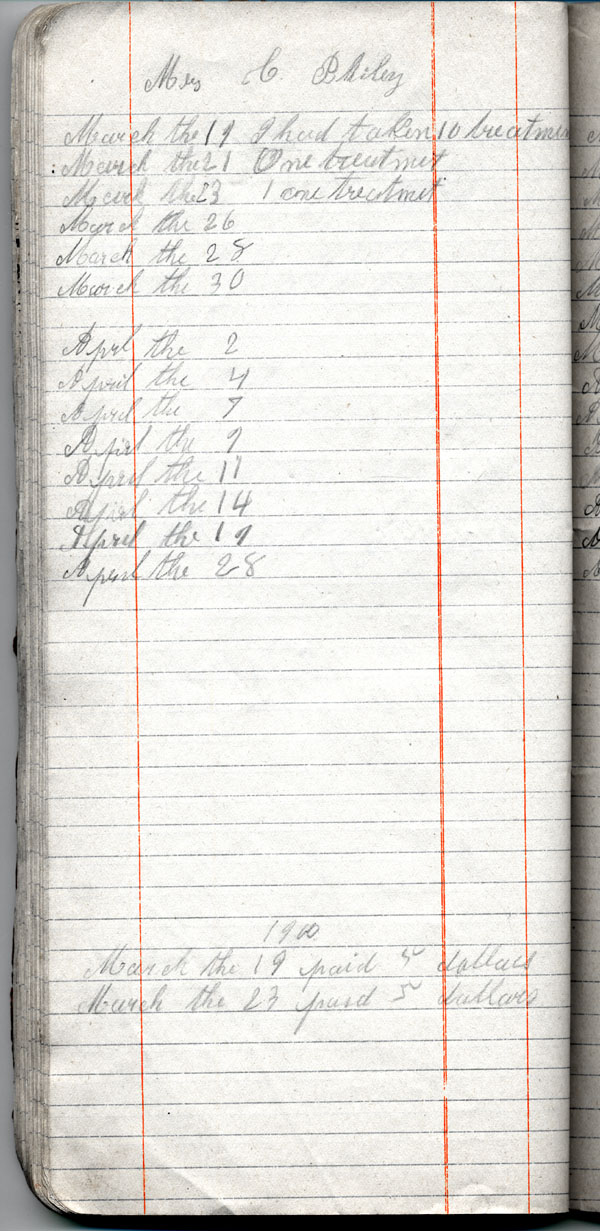 Mrs C. Philey
March the 19 I had taken 10 treatmen
March the 21 One treatmet
March the 23 1 one treatmet
March the 26
March the 28
March the 30
Aprl the 2
April the 4
April the 7
April the 9
April the 11
April the 14
April the 19
April the 28
1900
March the 19 paid 5 dollars
March the 23 paid 5 dollars